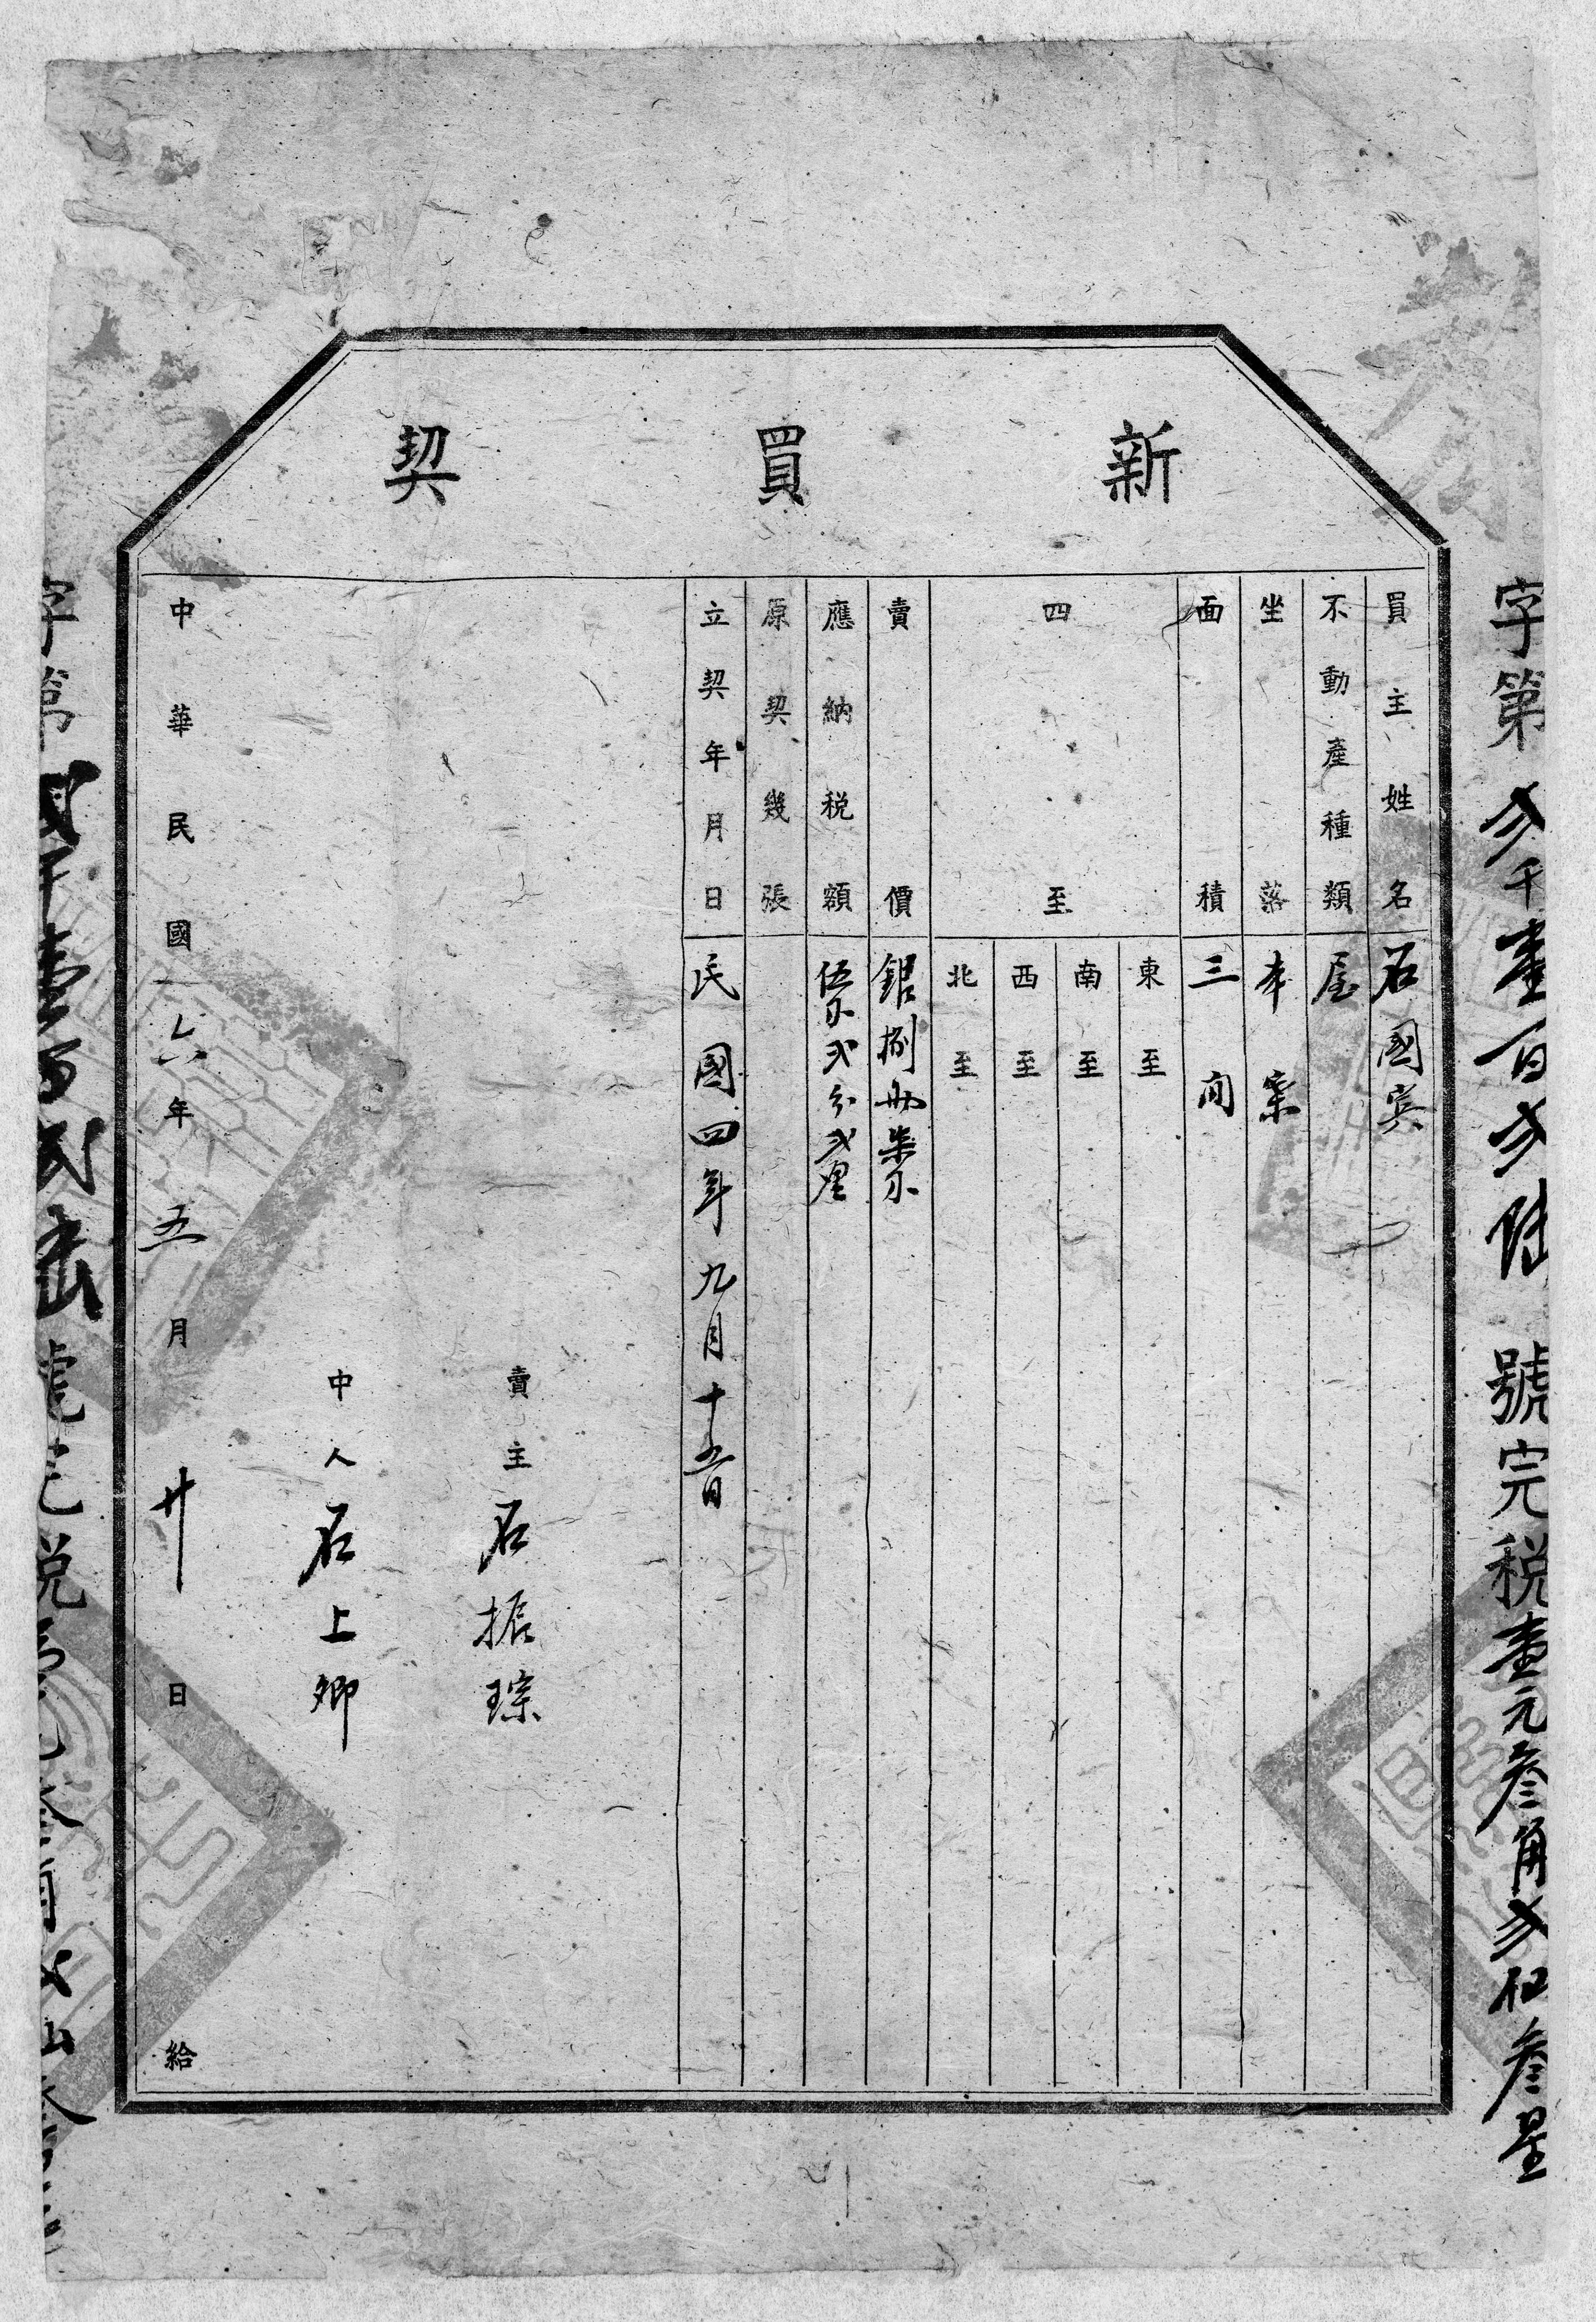 字第弐千壹百弐陆號完税壹元叁角弐仙叁星
新買契
買主姓名 石國宾
不動產種類 屋
坐落 本寨
面積 三间
四至
東至
南至
西至
北至
賣價 銀捌两柒錢
應納税額 伍錢弍分弍厘
原契幾張
立契年月日 民國四年九月十五日
賣主 石振琮
中人 石上卿
中華民國六年五月廿日給